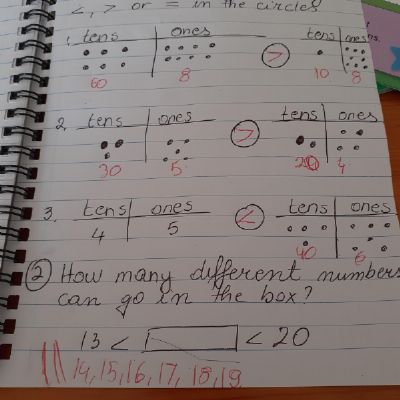 <, > or = in the circles
1. tens ones tens ones
>
60 8 10 8
2. tens ones > tens ones
30 5 20 4
3. tens ones < tens ones
4 5
40 6
② How many different numbers
can go in the box?
13 < < 20
14, 15, 16, 17, 18, 19